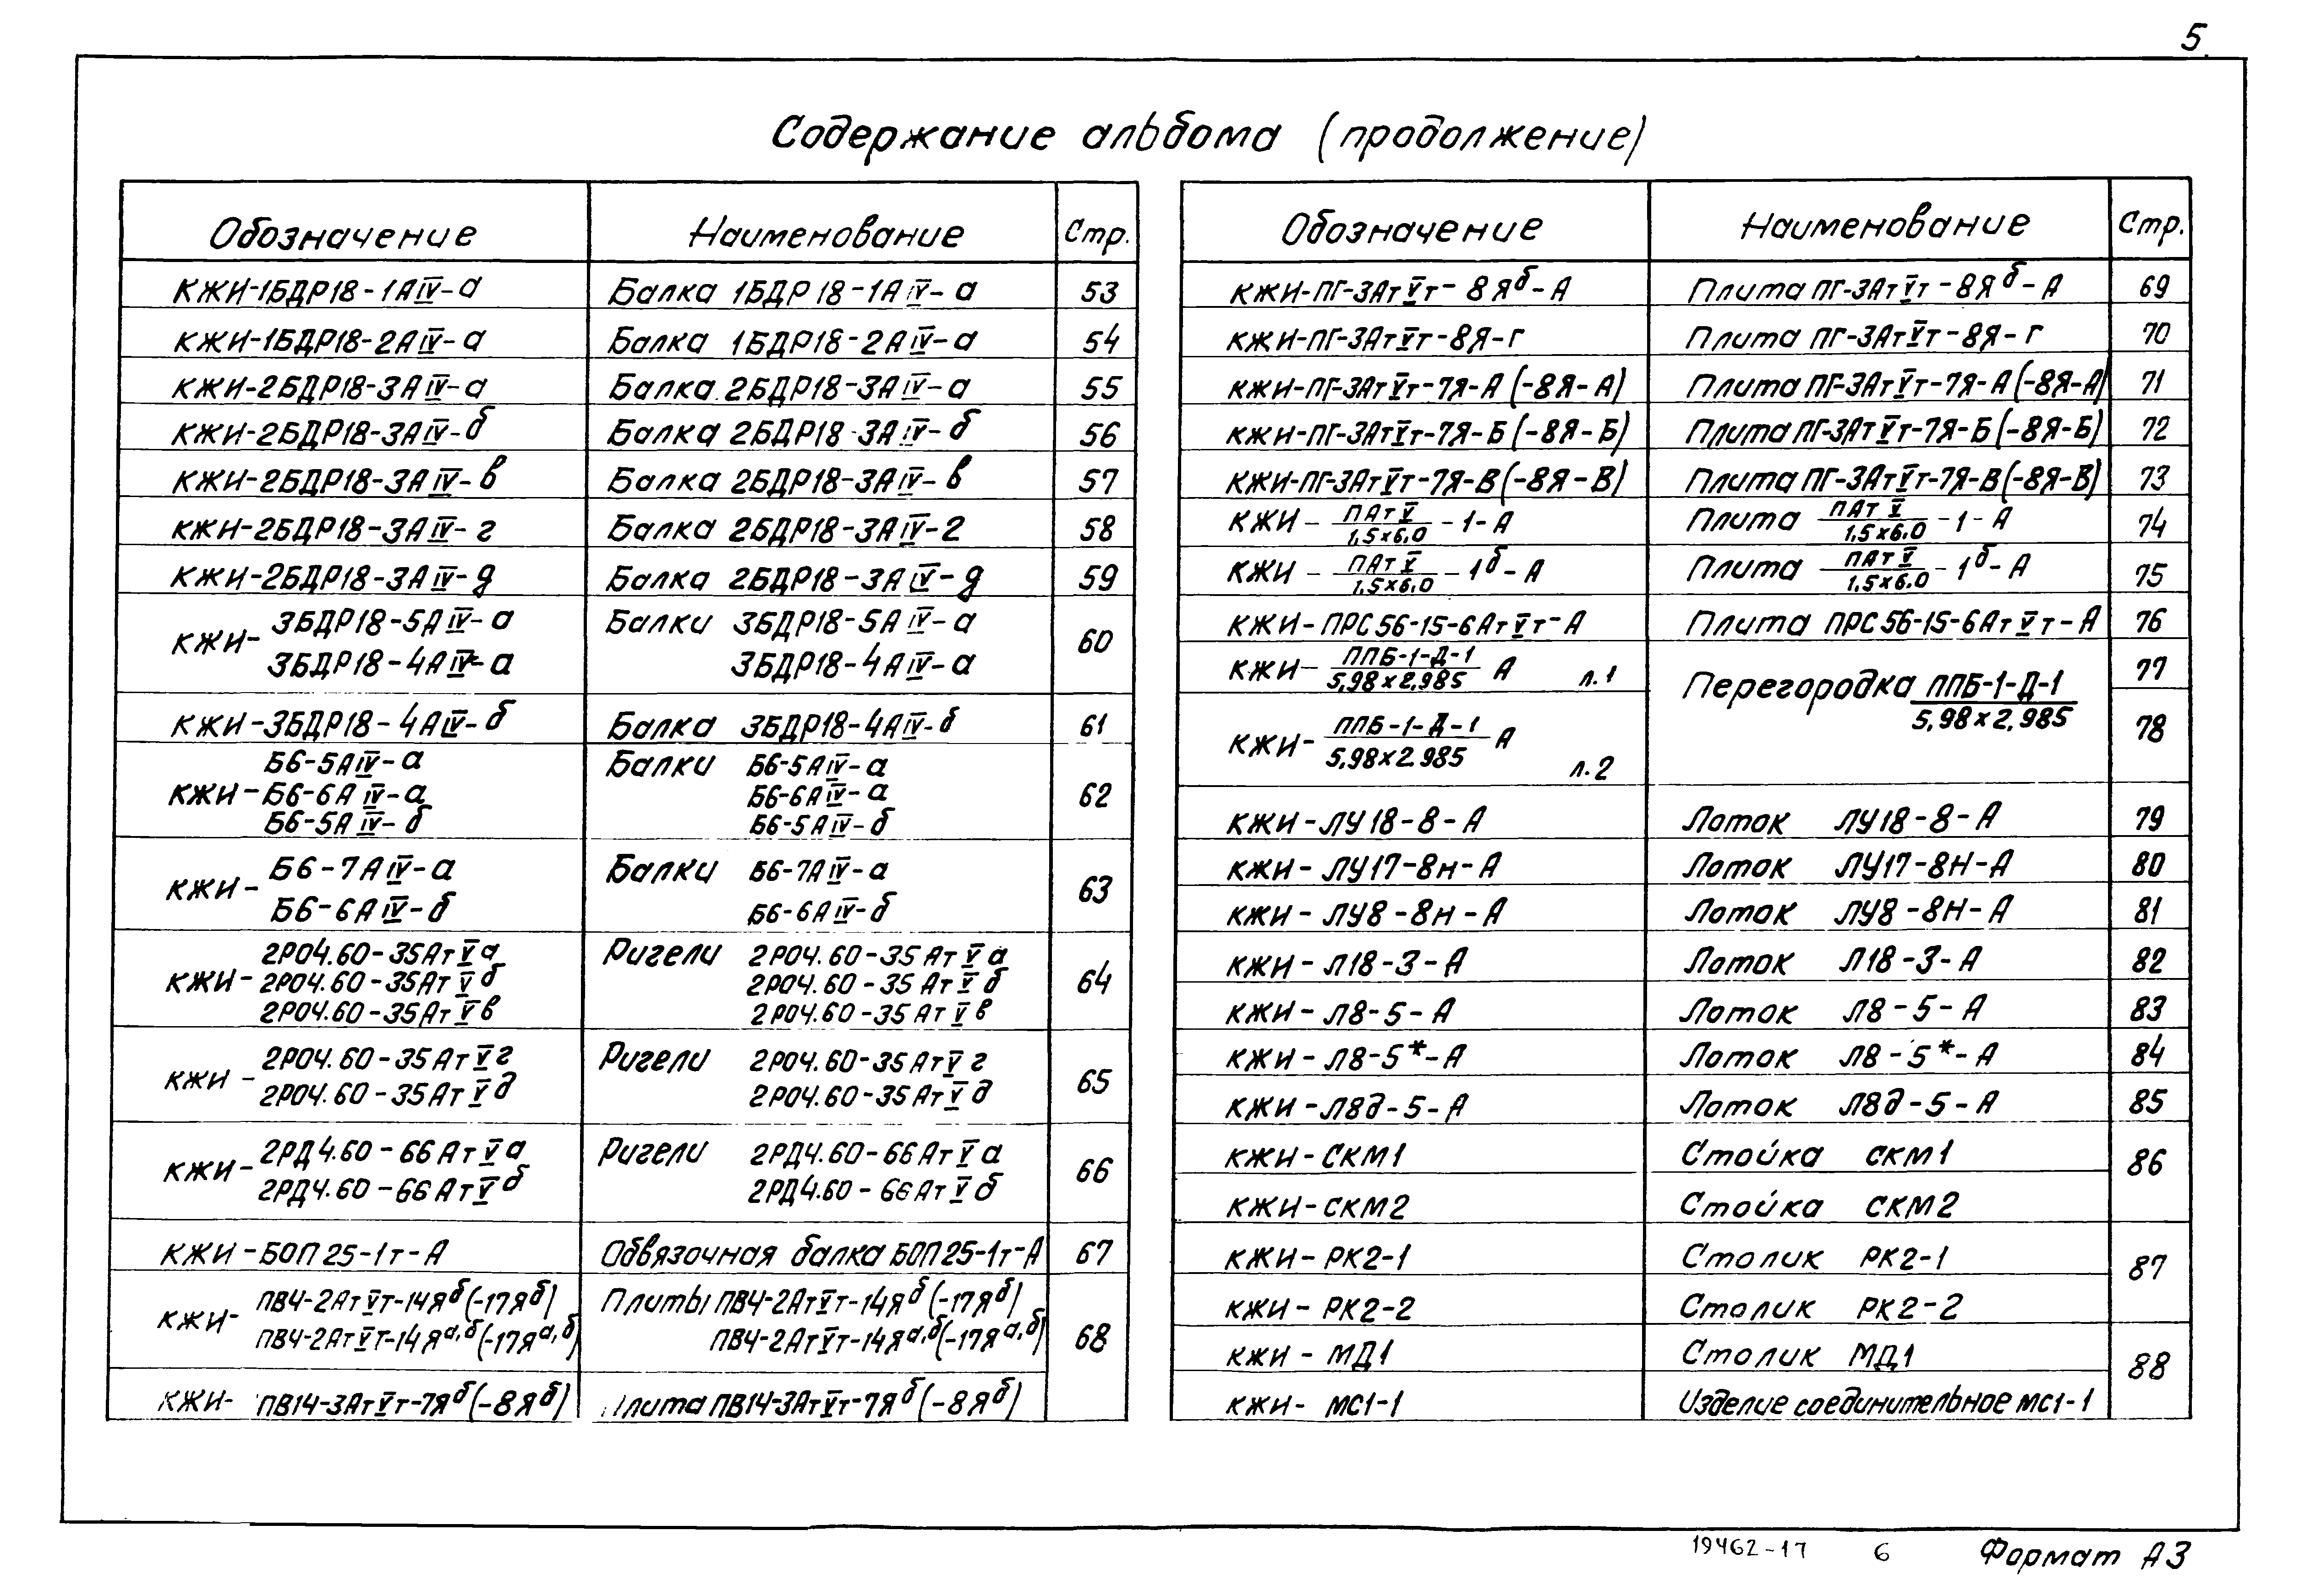 5
Содержание альбома (продолжение)
Обозначение Наименование Стр.
КЖИ-1БДР18-1АIV-а Балка 1БДР18-1АIV-а 53
КЖИ-1БДР18-2АIV-а Балка 1БДР18-2АIV-а 54
КЖИ-2БДР18-3АIV-а Балка 2БДР18-3АIV-а 55
КЖИ-2БДР18-3АIV-б Балка 2БДР18-3АIV-б 56
КЖИ-2БДР18-3АIV-в Балка 2БДР18-3АIV-в 57
КЖИ-2БДР18-3АIV-г Балка 2БДР18-3АIV-г 58
КЖИ-2БДР18-3АIV-д Балка 2БДР18-3АIV-д 59
КЖИ- 3БДР18-5АIV-а Балки 3БДР18-5АIV-а 60
3БДР18-4АIV-а 3БДР18-4АIV-а
КЖИ-3БДР18-4АIV-б Балка 3БДР18-4АIV-б 61
Б6-5АIV-а Балки Б6-5АIV-а
КЖИ-Б6-6АIV-а Б6-6АIV-а 62
Б6-5АIV-б Б6-5АIV-б
КЖИ- Б6-7АIV-а Балки Б6-7АIV-а 63
Б6-6АIV-б Б6-6АIV-б
2РО4.60-35АтVа Ригели 2РО4.60-35АтVа
КЖИ-2РО4.60-35АтVб 2РО4.60-35АтVб 64
2РО4.60-35АтVв 2РО4.60-35АтVв
КЖИ- 2РО4.60-35АтVг Ригели 2РО4.60-35АтVг 65
2РО4.60-35АтVд 2РО4.60-35АтVд
КЖИ- 2РД4.60-66АтVа Ригели 2РД4.60-66АтVа 66
2РД4.60-66АтVб 2РД4.60-66АтVб
КЖИ-БОП25-1т-А Обвязочная балка БОП25-1т-А 67
КЖИ- ПВ4-2АтVт-14Яб(-17Яб) Плиты ПВ4-2АтVт-14Яб(-17Яб) 68
ПВ4-2АтVт-14Яа,б(-17Яа,б) ПВ4-2АтVт-14Яа,б(-17Яа,б)
КЖИ- ПВ14-3АтVт-7Яб(-8Яб) Плита ПВ14-3АтVт-7Яб(-8Яб)
Обозначение Наименование Стр.
КЖИ-ПГ-3АтVт-8Яб-А Плита ПГ-3АтVт-8Яб-А 69
КЖИ-ПГ-3АтVт-8Я-г Плита ПГ-3АтVт-8Я-г 70
КЖИ-ПГ-3АтVт-7Я-А(-8Я-А) Плита ПГ-3АтVт-7Я-А(-8Я-А) 71
КЖИ-ПГ-3АтVт-7Я-Б(-8Я-Б) Плита ПГ-3АтVт-7Я-Б(-8Я-Б) 72
КЖИ-ПГ-3АтVт-7Я-В(-8Я-В) Плита ПГ-3АтVт-7Я-В(-8Я-В) 73
КЖИ- ПАтV/1,5х6,0 -1-А Плита ПАтV/1,5х6,0 -1-А 74
КЖИ- ПАтV/1,5х6,0 -1б-А Плита ПАтV/1,5х6,0 -1б-А 75
КЖИ-ПРС56-15-6АтVт-А Плита ПРС56-15-6АтVт-А 76
КЖИ- ППБ-1-Д-1/5,98х2,985 А л.1 Перегородка ППБ-1-Д-1/5,98х2,985 77
КЖИ- ППБ-1-Д-1/5,98х2.985 А л.2 78
КЖИ-ЛУ18-8-А Лоток ЛУ18-8-А 79
КЖИ-ЛУ17-8н-А Лоток ЛУ17-8Н-А 80
КЖИ-ЛУ8-8н-А Лоток ЛУ8-8Н-А 81
КЖИ-Л18-3-А Лоток Л18-3-А 82
КЖИ-Л8-5-А Лоток Л8-5-А 83
КЖИ-Л8-5*-А Лоток Л8-5*-А 84
КЖИ-Л8д-5-А Лоток Л8д-5-А 85
КЖИ-СКМ1 Стойка СКМ1 86
КЖИ-СКМ2 Стойка СКМ2
КЖИ-РК2-1 Столик РК2-1 87
КЖИ-РК2-2 Столик РК2-2
КЖИ-МД1 Столик МД1 88
КЖИ-МС1-1 Изделие соединительное МС1-1
19462-17 6 Формат А3